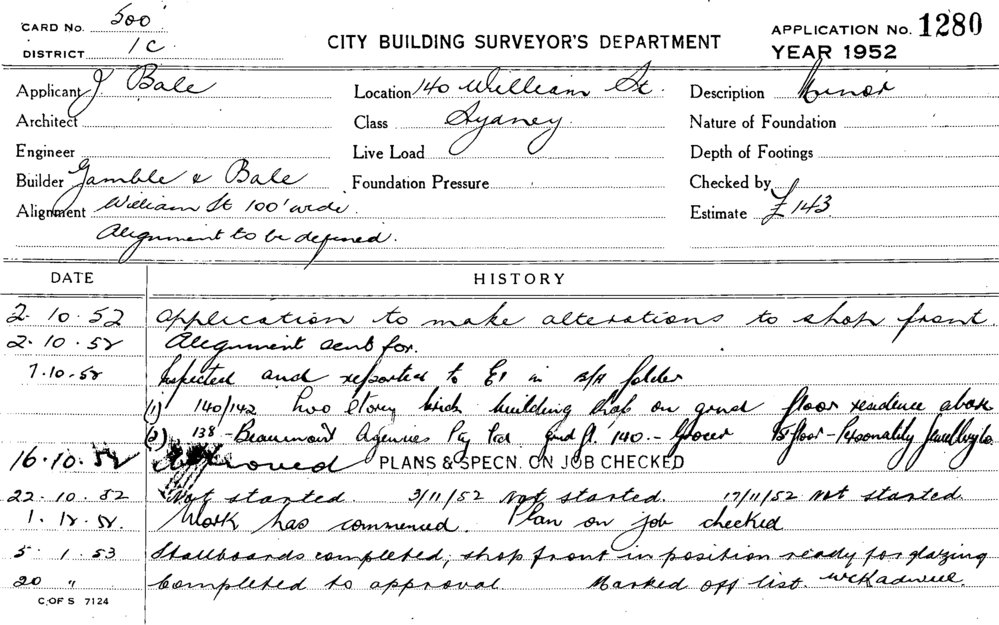 CARD No. 500
DISTRICT 1C
CITY BUILDING SURVEYOR'S DEPARTMENT
APPLICATION No. 1280
YEAR 1952
Applicant J Bale
Location 140 William St.
Description Minor
Architect
Class Sydney
Nature of Foundation
Engineer
Live Load
Depth of Footings
Builder Gamble & Bale
Foundation Pressure
Checked by
Alignment William St 100' wide.
Estimate £143
Alignment to be defined.
DATE HISTORY
2.10.52 Application to make alterations to shop front.
2.10.52 Alignment sent for.
7.10.52 Inspected and reported to in folder
(1) 140/142 two storey brick building shop on grnd floor residence above
(2) 138 - Beaumont Agencies Pty Ltd. grnd fl. 140 - Grocer 1st floor - Personality
16.10.52 Approved PLANS & SPECN. ON JOB CHECKED
22.10.52 Not started. 3/11/52 Not started. 17/11/52 Not started.
1.12.52. Work has commenced. Plan on job checked
5.1.53 Stallboards completed; shop front in position ready for glazing
20 " Completed to approval Marked off list.
C. OF S 7124